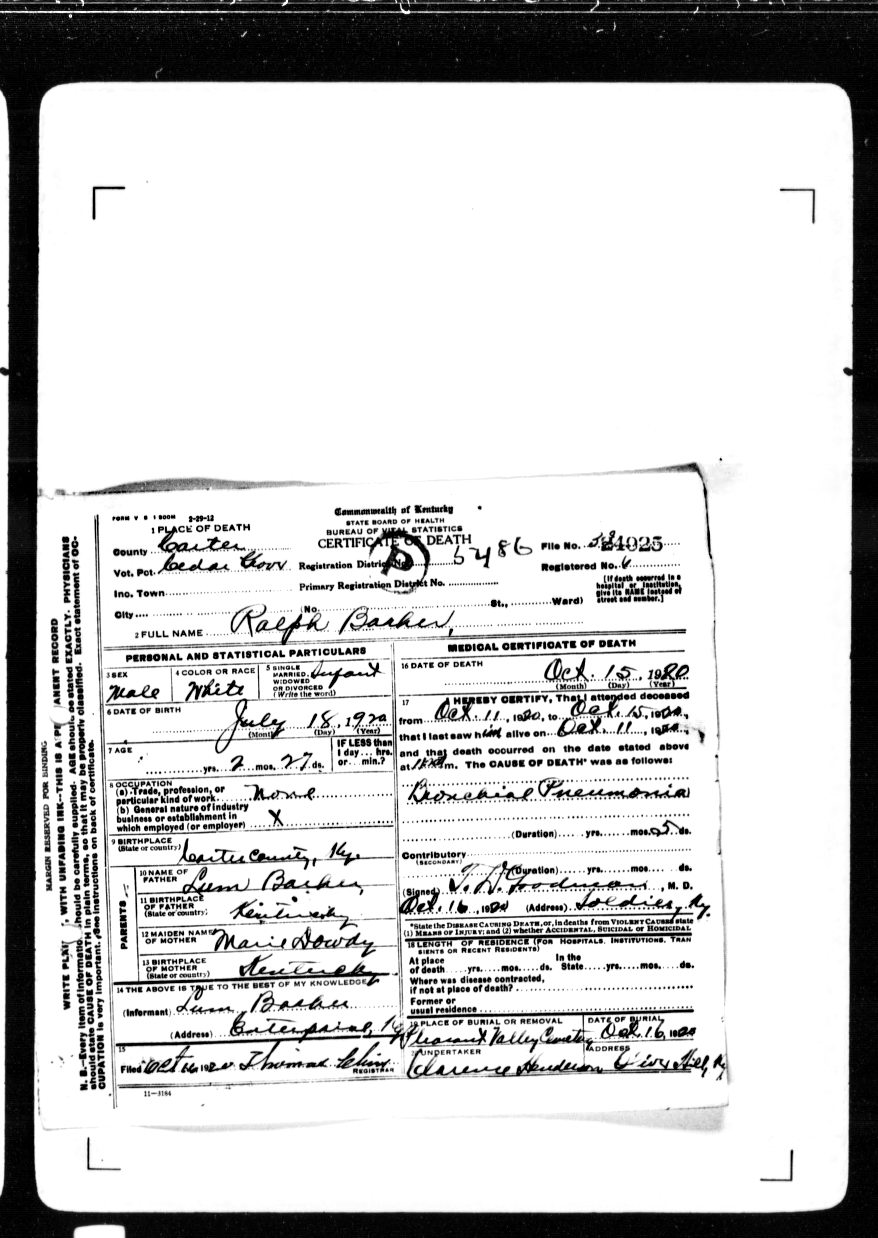 FORM V S 1 500M 2-29-12
Commonwealth of Kentucky
STATE BOARD OF HEALTH
BUREAU OF VITAL STATISTICS
CERTIFICATE OF DEATH
1 PLACE OF DEATH
County Carter
Vot. Pct. Cedar
Inc. Town
City (No. St., Ward)
Registration District No. 5486
Primary Registration District No.
File No. 24025
Registered No. 6
[If death occurred in a
hospital or institution,
give its NAME instead of
street and number.]
2 FULL NAME Ralph Barker
PERSONAL AND STATISTICAL PARTICULARS
3 SEX
Male
4 COLOR OR RACE
White
5 SINGLE
MARRIED
WIDOWED
OR DIVORCED
(Write the word)
Infant
6 DATE OF BIRTH
July 18, 1920
(Month) (Day) (Year)
7 AGE
yrs. 2 mos. 27 ds.
IF LESS than
1 day... hrs.
or... min.?
8 OCCUPATION
(a) Trade, profession, or
particular kind of work None
(b) General nature of industry
business or establishment in
which employed (or employer) X
9 BIRTHPLACE
(State or country)
Carter County, Ky.
PARENTS
10 NAME OF
FATHER
Lum Barker
11 BIRTHPLACE
OF FATHER
(State or country)
Kentucky
12 MAIDEN NAME
OF MOTHER
Marie Dowdy
13 BIRTHPLACE
OF MOTHER
(State or country)
Kentucky
14 THE ABOVE IS TRUE TO THE BEST OF MY KNOWLEDGE
(Informant) Lum Barker
(Address) Enterprise, Ky
15
Filed Oct 16, 192
REGISTRAR
11-3184
MEDICAL CERTIFICATE OF DEATH
16 DATE OF DEATH
Oct. 15, 1920
(Month) (Day) (Year)
17 I HEREBY CERTIFY, That I attended deceased
from Oct. 11, 1920, to Oct. 15, 1920,
that I last saw him alive on Oct. 11, 1920,
and that death occurred on the date stated above
at m. The CAUSE OF DEATH* was as follows:
Bronchial Pneumonia
(Duration) yrs. mos. 5 ds.
Contributory
(SECONDARY)
(Duration) yrs. mos. ds.
(Signed) M. D.
Oct. 16, 1920 (Address) Soldier, Ky.
*State the DISEASE CAUSING DEATH, or, in deaths from VIOLENT CAUSES state
(1) MEANS OF INJURY; and (2) whether ACCIDENTAL, SUICIDAL or HOMICIDAL
18 LENGTH OF RESIDENCE (FOR HOSPITALS, INSTITUTIONS, TRAN
SIENTS OR RECENT RESIDENTS)
At place
of death yrs. mos. ds.
In the
State yrs. mos. ds.
Where was disease contracted,
if not at place of death?
Former or
usual residence
19 PLACE OF BURIAL OR REMOVAL
Pleasant Valley Cemetery
DATE OF BURIAL
Oct. 16, 1920
20 UNDERTAKER
Clarence Henderson
ADDRESS
Olive Hill, Ky
MARGIN RESERVED FOR BINDING
WITH UNFADING INK--THIS IS A RECORD
N. B.--Every item of information should be carefully supplied. AGE should be stated EXACTLY. PHYSICIANS
should state CAUSE OF DEATH in plain terms, so that it may be properly classified. Exact statement of OC-
CUPATION is very important. See instructions on back of certificate.